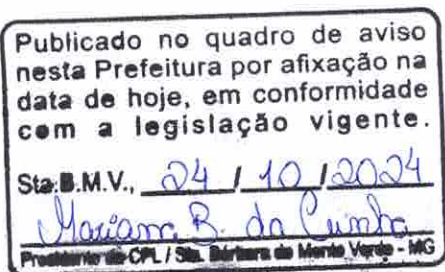 Publicado no quadro de aviso
nesta Prefeitura por afixação na
data de hoje, em conformidade
com a legislação vigente.
Sta.B.M.V., 24 / 10 / 2024
Mariana B. da Cunha
Presidente da CPL / Sta. Bárbara do Monte Verde - MG